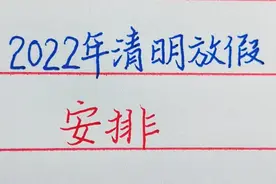 2022年清明放假
安排